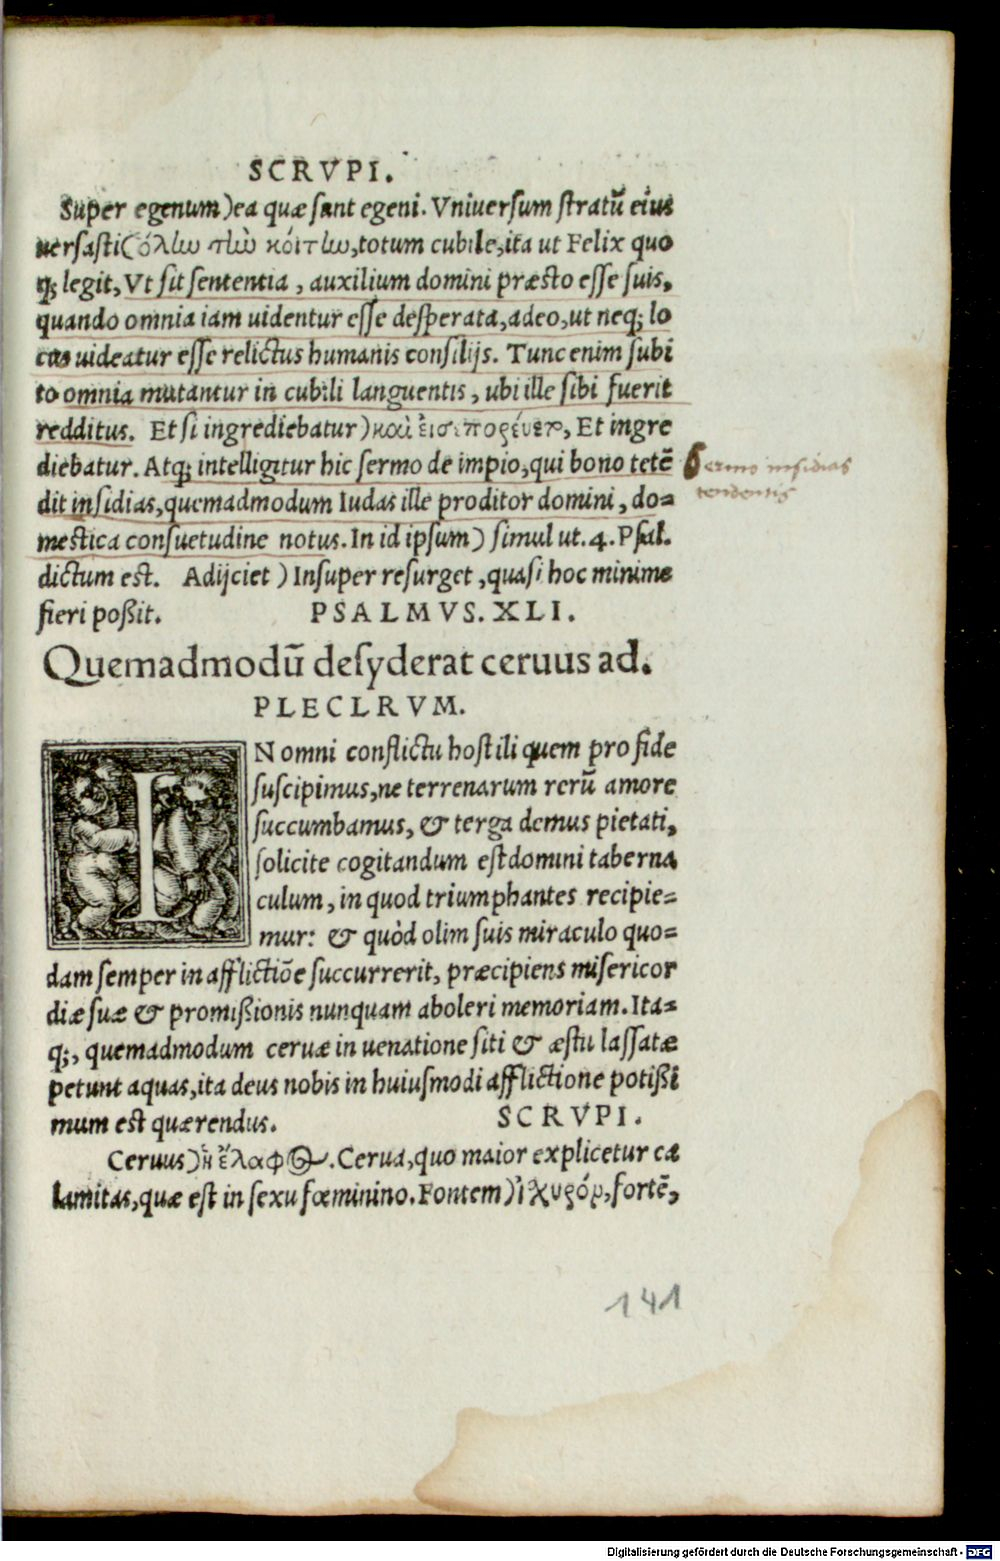 SCRVPI.
Super egenum)ea quæ sunt egeni. Vniuersum stratũ eius
uersasti(ὅλην τὴν κοίτην, totum cubile, ita ut Felix quo
q; legit, Vt sit sententia, auxilium domini præsto esse suis,
quando omnia iam uidentur esse desperata, adeo, ut neq; lo
cus uideatur esse relictus humanis consilijs. Tunc enim subi
to omnia mutantur in cubili languentis, ubi ille sibi fuerit
redditus. Et si ingrediebatur) καὶ , Et ingre
diebatur. Atq; intelligitur hic sermo de impio, qui bono tetẽ
dit insidias, quemadmodum Iudas ille proditor domini, do=
mestica consuetudine notus. In id ipsum) simul ut. 4. Psal.
dictum est. Adijciet) Insuper resurget, quasi hoc minime
fieri poßit. PSALMVS. XLI.
Sermo insidias
tendentis
Quemadmodũ desyderat ceruus ad.
PLECLRVM.
IN omni conflictu hostili quem pro fide
suscipimus, ne terrenarum rerũ amore
succumbamus, & terga demus pietati,
solicite cogitandum est domini taberna
culum, in quod triumphantes recipie=
mur: & quòd olim suis miraculo quo=
dam semper in afflictiõe succurrerit, præcipiens misericor
diæ suæ & promißionis nunquam aboleri memoriam. Ita=
q;, quemadmodum ceruæ in uenatione siti & æstu lassatæ
petunt aquas, ita deus nobis in huiusmodi afflictione potißi
mum est quærendus. SCRVPI.
Ceruus) ἡ ἔλαφος. Cerua, quo maior explicetur ca
lamitas, quæ est in sexu fœminino. Fontem) ἰχυρόν, fortẽ,
141
Digitalisierung gefördert durch die Deutsche Forschungsgemeinschaft - DFG